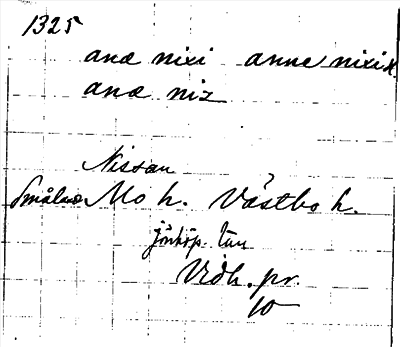 1325
anæ nixi anne nixi
anæ niz
Nissan
Småland Mo h. Västbo h.
Jönköp. län
Vidh. pr.
10